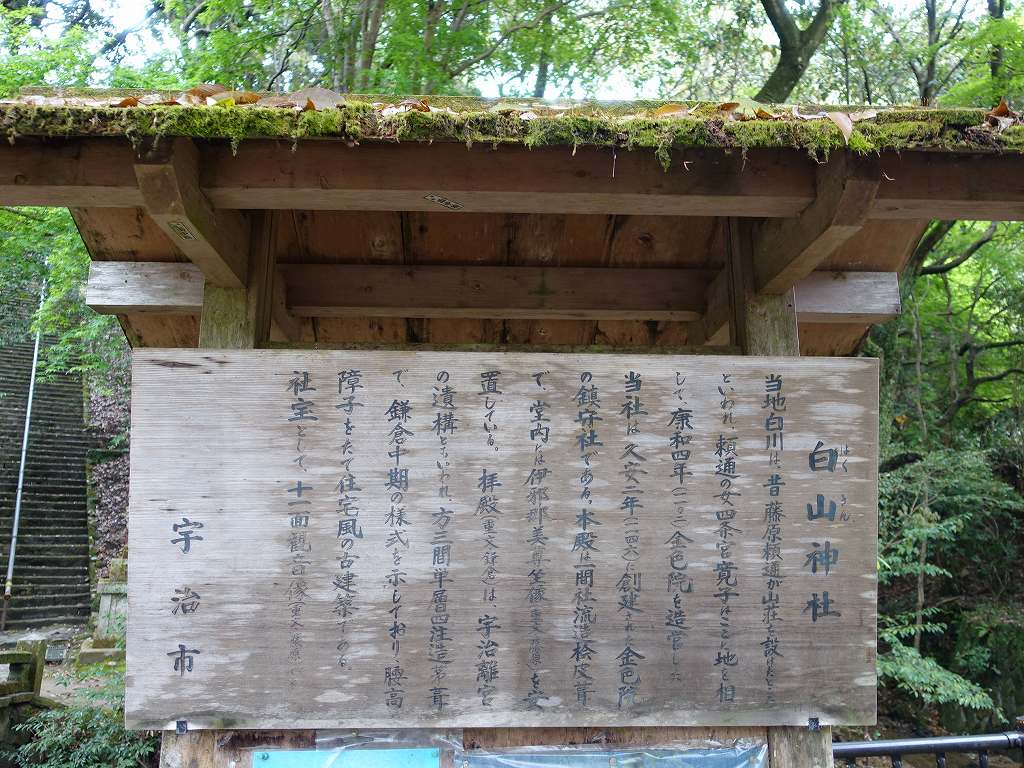 白山神社
はくさん
当地白川は、昔藤原頼通が山荘を設けたところ
といわれ、頼通の女四条宮寛子はここに地を相
して、康和四年(一一〇二)金色院を造営した
当社は久安二年(一一四六)に創建された金色院
の鎮守社である。本殿は一間社流造桧皮葺
で、堂内には伊邪那美尊坐像(重文・藤原)を安
置している。拝殿(重文・鎌倉)は、宇治離宮
の遺構ともいわれ、方三間単層四注造茅葺
で、鎌倉中期の様式を示しており、腰高
障子をたて住宅風の古建築である。
社宝として、十一面観音像(重文・藤原
宇治市